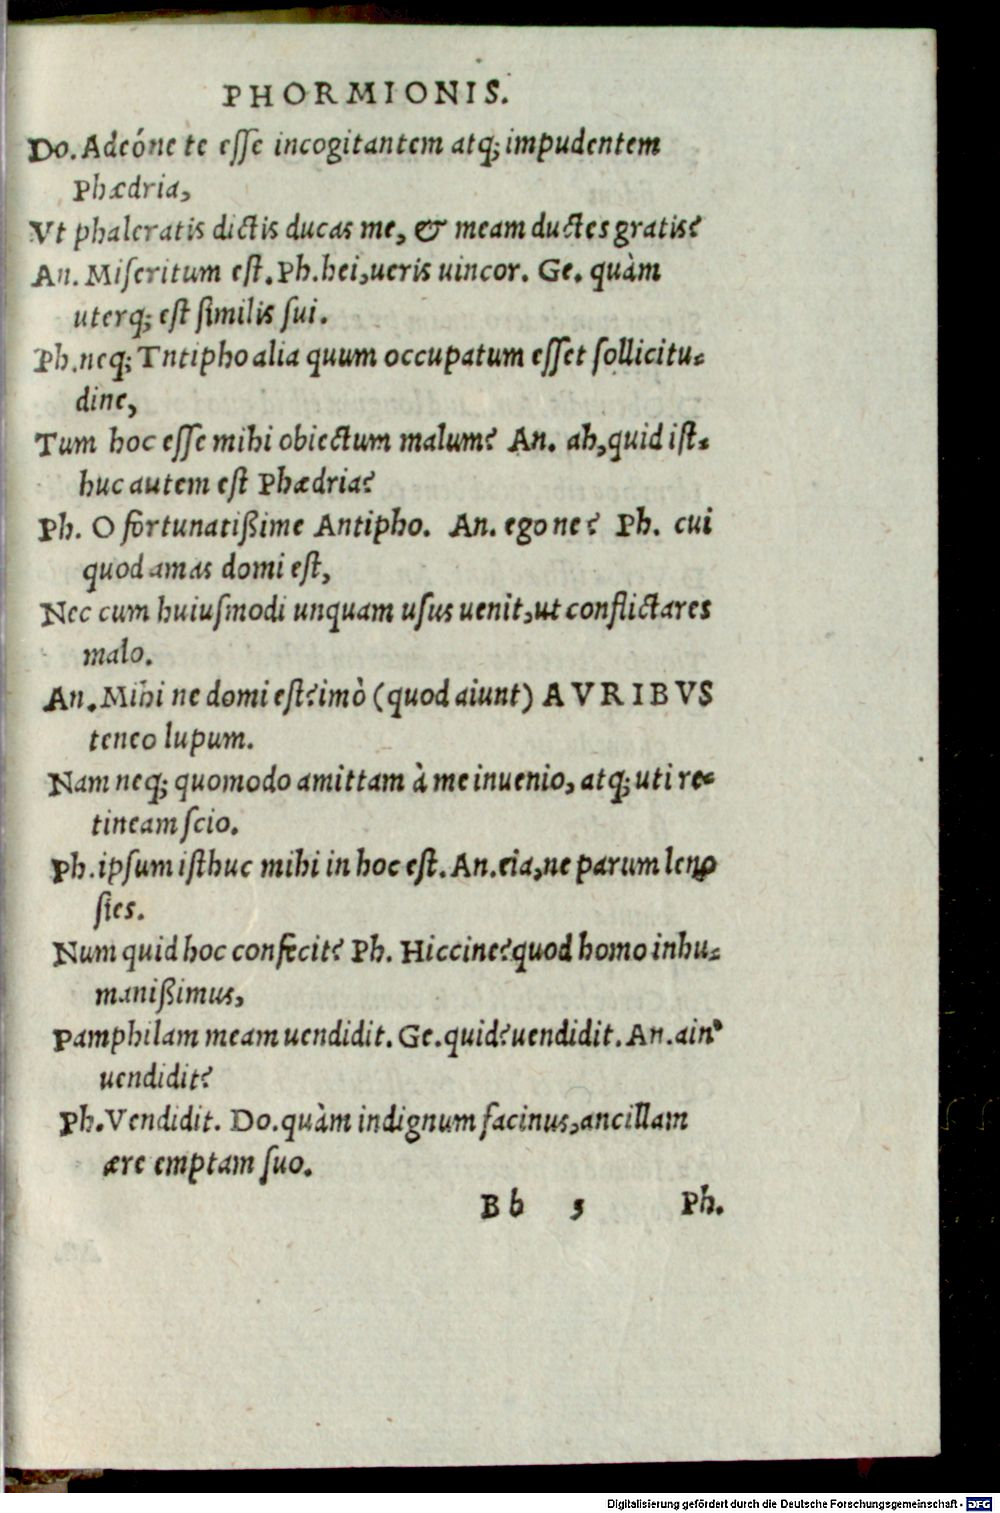 PHORMIONIS.
Do. Adeóne te esse incogitantem atq; impudentem
Phædria,
Vt phaleratis dictis ducas me, & meam ductes gratis?
An. Miseritum est. Ph. hei, ueris uincor. Ge. quàm
uterq; est similis sui.
Ph. neq; Tntipho alia quum occupatum esset sollicitu-
dine,
Tum hoc esse mihi obiectum malum? An. ah, quid ist-
huc autem est Phædria?
Ph. O fortunatißime Antipho. An. ego ne? Ph. cui
quod amas domi est,
Nec cum huiusmodi unquam usus uenit, ut conflictares
malo.
An. Mihi ne domi est? imò (quod aiunt) AVRIBVS
teneo lupum.
Nam neq; quomodo amittam à me inuenio, atq; uti re-
tineam scio.
Ph. ipsum isthuc mihi in hoc est. An. eia, ne parum leno
sies.
Num quid hoc confecit? Ph. Hiccine? quod homo inhu-
manißimus,
Pamphilam meam uendidit. Ge. quid? uendidit. An. ain'
uendidit?
Ph. Vendidit. Do. quàm indignum facinus, ancillam
ære emptam suo.
Bb 5 Ph.
Digitalisierung gefördert durch die Deutsche Forschungsgemeinschaft - DFG